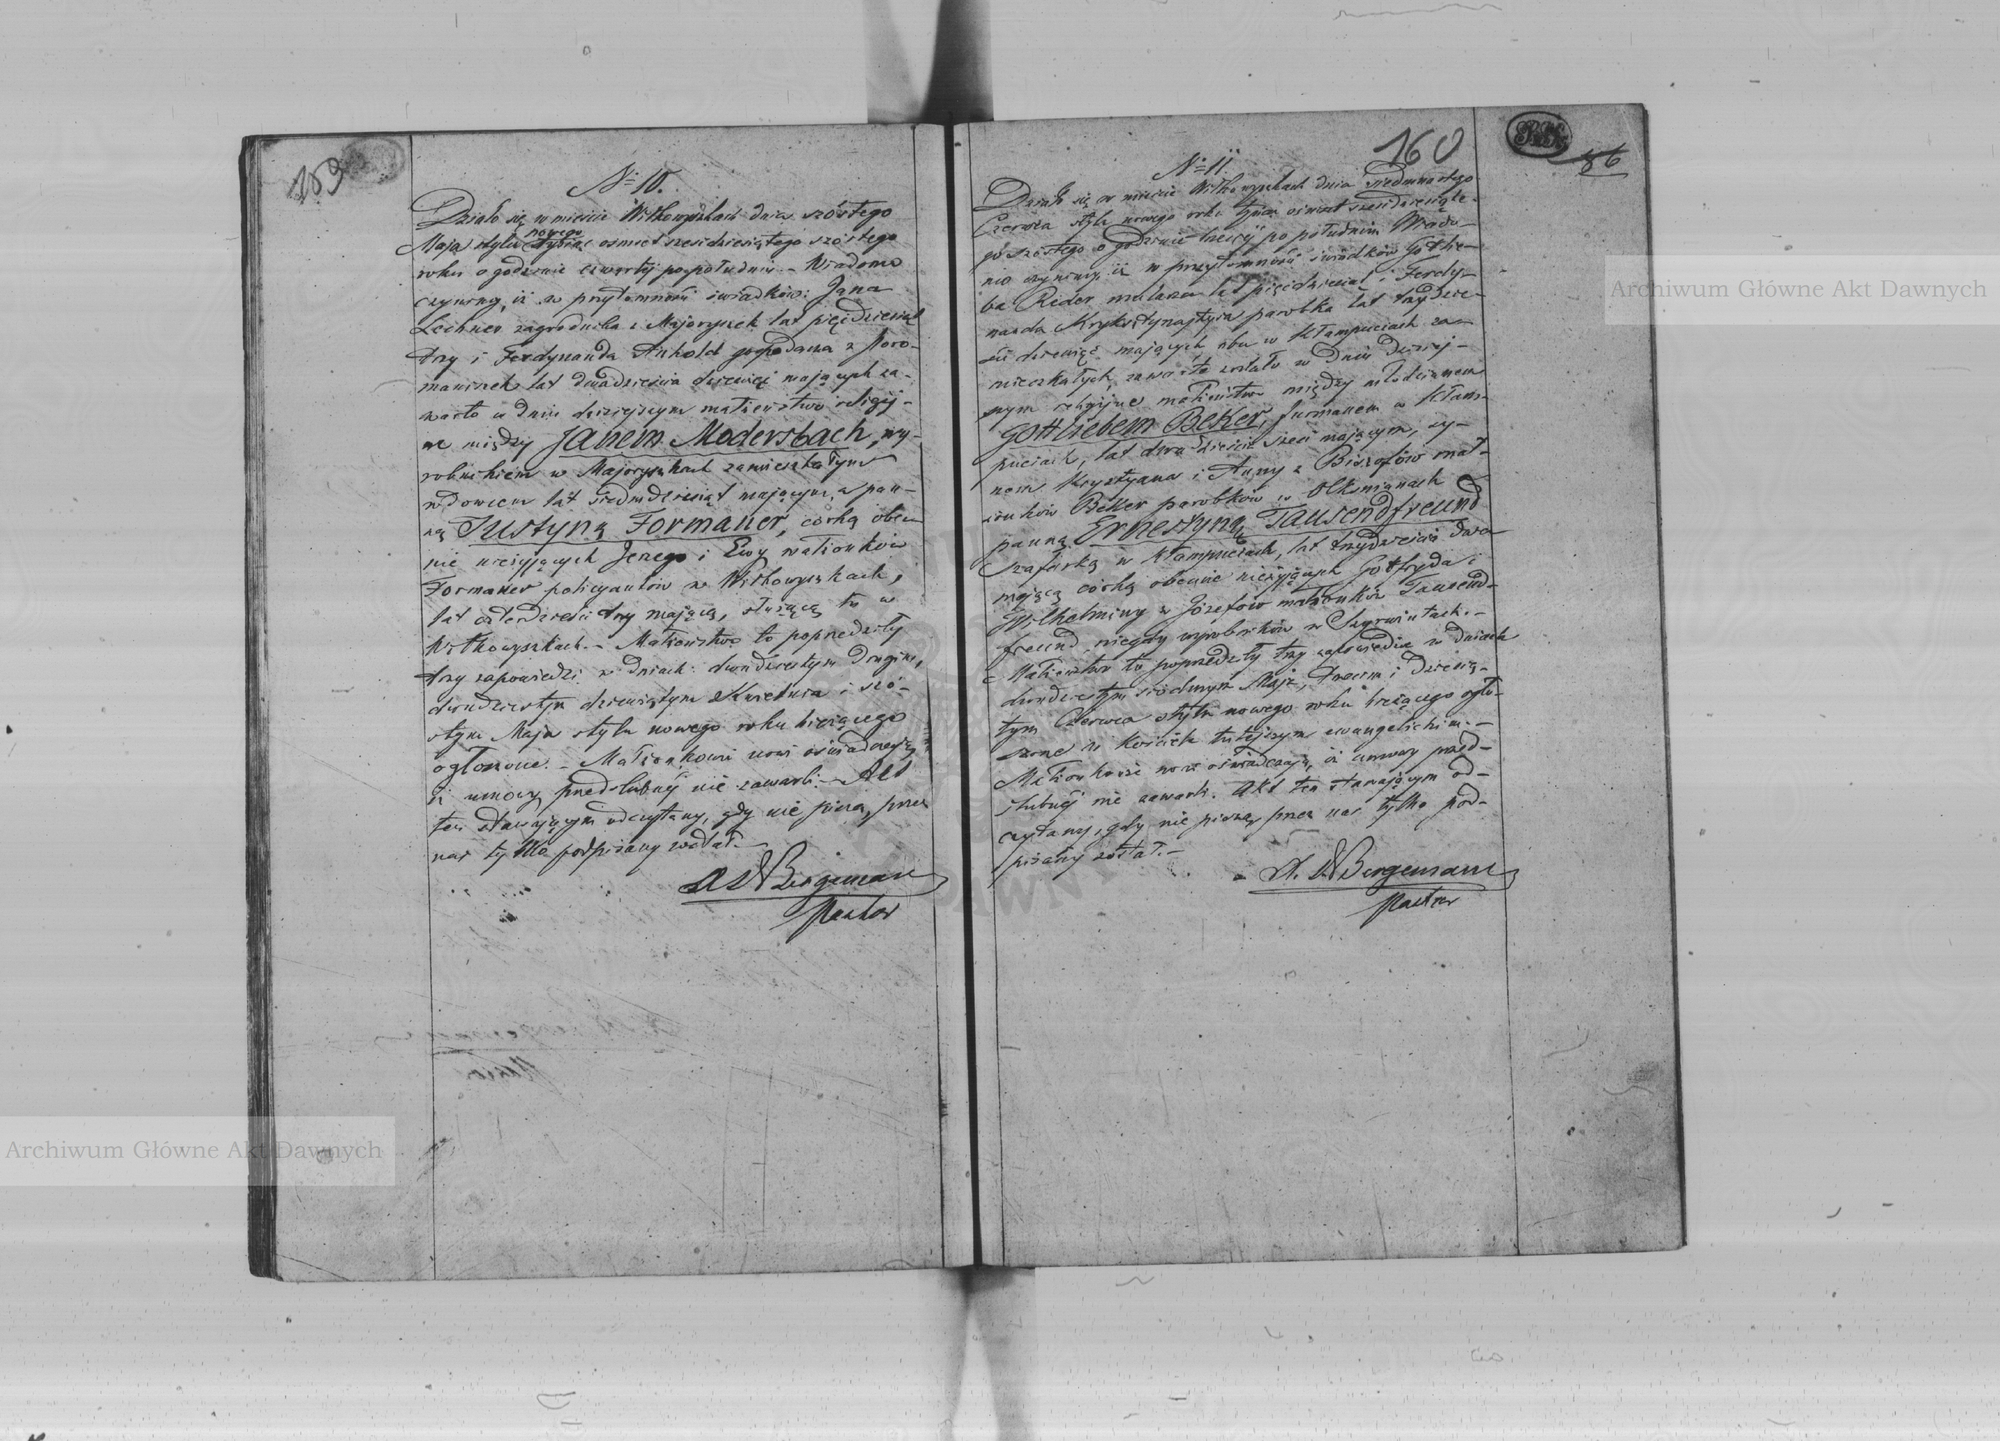 159
No 10.
Działo się w mieście Wiłkowyszkach dnia szóstego
Maja stylu nowego tysiąc ośmset sześćdziesiątego szóstego
roku o godzinie czwartej popołudniu. – Wiadomo
czynimy, iż w przytomności świadków: Jana
Lechner zagrodnika z Majoryszek lat pięćdziesiąt
trzy i Ferdynanda Anhold gospodarza z Poro-
mawiszek lat dwadzieścia dziewięć mających za-
warto w dniu dzisiejszym małżeństwo religij-
ne między Janem Modersbach, wy-
robnikiem w Majoryszkach zamieszkałym
wdowcem lat siedmdziesiąt mającym, a pan-
ną Justyną Formaner, córką obec-
nie nieżyjących Jerzego i Ewy małżonków
Formaner policyantów w Wiłkowyszkach,
lat czterdzieści trzy mającą, służącą tu w
Wiłkowyszkach. – Małżeństwo to poprzedziły
trzy zapowiedzi w dniach: dwudziestym drugim,
dwudziestym dziewiątym Kwietnia i szó-
stym Maja stylu nowego roku bieżącego
ogłoszone. – Małżonkowie nowi oświadczają,
iż umowy przedślubnéj nie zawarli. – Akt
ten stawającym odczytany, gdy nie piszą, przez
nas tylko podpisany został. –
Bergemann
Pastor
160
86
No 11.
Działo się w mieście Wiłkowyszkach dnia siedmnastego
Czerwca stylu nowego roku tysiąc ośmset sześćdziesiąte-
go szóstego o godzinie trzeciéj po południu. Wiado-
mo czynimy, iż w przytomności świadków Gottlie-
ba Reder mularza lat pięćdziesiąt i Ferdy-
nanda parobka lat trzydzie-
ści dziewięć mających obu w Kłampuciach za-
mieszkałych, zawarte zostało w dniu dzisiej-
szym religijne małżeństwo między młodzianem
Gottliebem Beker, furmanem w Kłam-
puciach, lat dwadzieścia sześć mającym, sy-
nem Krystyana i Anny z Biszofów mał-
żonków Beker parobków w Olksnianach a
panną Ernestyną Tausendfreund
szafarką w Kłampuciach, lat trzydzieści dwa
mającą córką obecnie nieżyjących Gotfryda i
Wilhelminy z Józefów małżonków Tausend-
freund, niegdy wyrobników w Szyrwintach. –
Małżeństwo to poprzedziły trzy zapowiedzie w dniach
dwudziestym siódmym Maja, trzecim i dziesią-
tym Czerwca stylu nowego roku bieżącego ogło-
szone w Kościele tutejszym ewangelickim. –
Małżonkowie nowi oświadczają, iż umowy przed-
ślubnéj nie zawarli. Akt ten stawającym od-
czytany, gdy nie piszą, przez nas tylko pod-
pisany został. –
Bergemann
Pastor
Archiwum Główne Akt Dawnych
Archiwum Główne Akt Dawnych